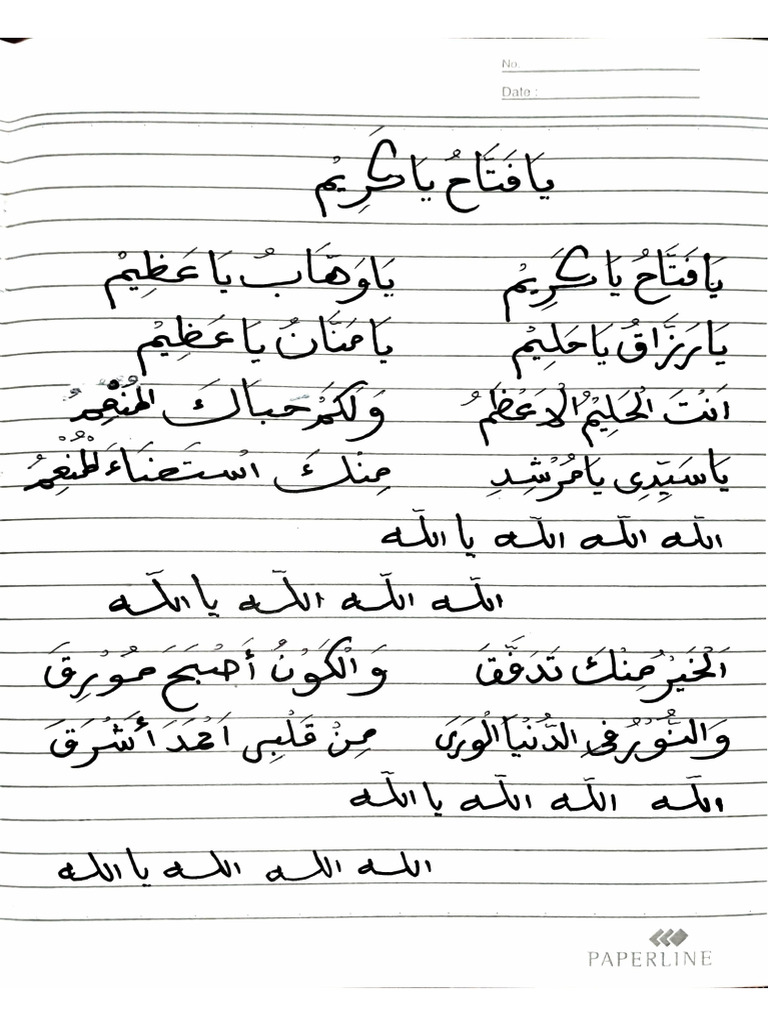 No.
Date :
يَا فَتَّاحُ يَا كَرِيْم
يَا فَتَّاحُ يَا كَرِيْم يَا وَهَّابُ يَا عَظِيْم
يَا رَزَّاقُ يَا حَلِيْم يَا مَنَّانُ يَا عَظِيْم
اَنْتَ الْحَلِيْمُ الْاَعْظَمُ وَلَكَمْ حَبَاكَ الْمُنْعِمُ
يَا سَيِّدِى يَا مُرْشِدِ مِنْكَ اسْتَضَاءَ الْمُنْعِمُ
الله الله الله يا الله
الله الله الله يا الله
اَلْخَيْرُ مِنْكَ تَدَفَّقَ وَالْكَوْنُ أَصْبَحَ مُوْرِقَ
وَالنُّوْرُ فِى الدُّنْيَا الْوَرَى مِنْ قَلْبِى اَحْمَدَ أَشْرَقَ
الله الله الله يا الله
الله الله الله يا الله
PAPERLINE